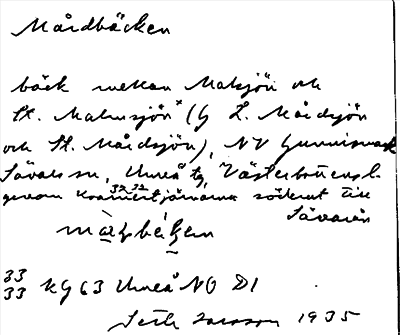 Mårdbäcken
bäck mellan Malsjön och
St. Malmsjön (G L. Mårdsjön
och St. Mårdsjön), NV Gunnismark
Sävar sn, Umeå tg, Västerbottens l.
genom Kvarntjärnarna söderut till
32 32
Sävarån
33
33 KG 63 Umeå NO D1
Larsson 1935